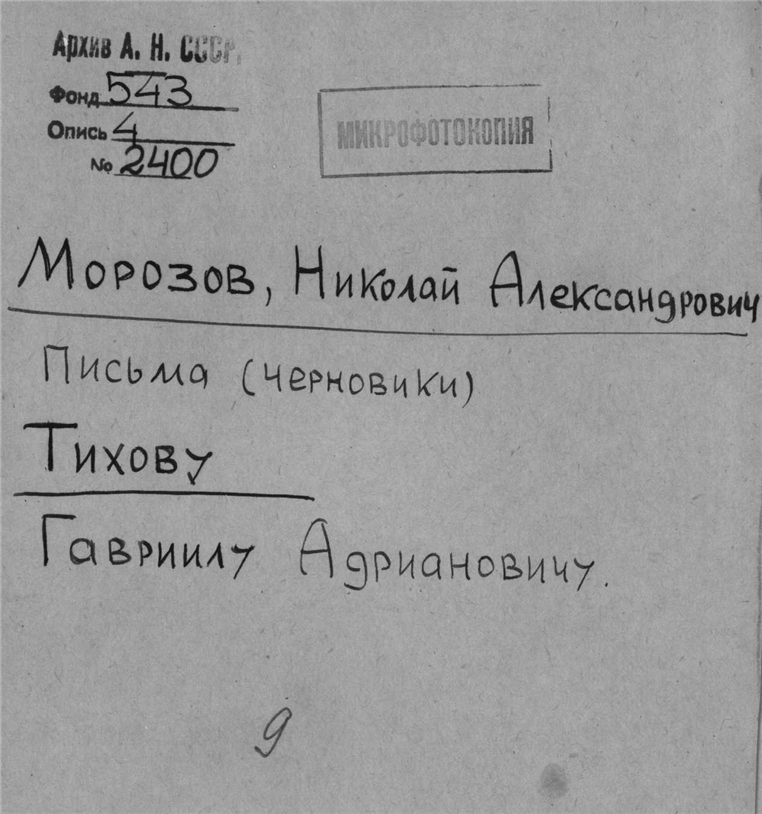 Архив А. Н. СССР.
Фонд 543
Опись 4
№ 2400
МИКРОФОТОКОПИЯ
Морозов, Николай Александрович
Письма (черновики)
Тихову
Гавриилу Адриановичу.
9